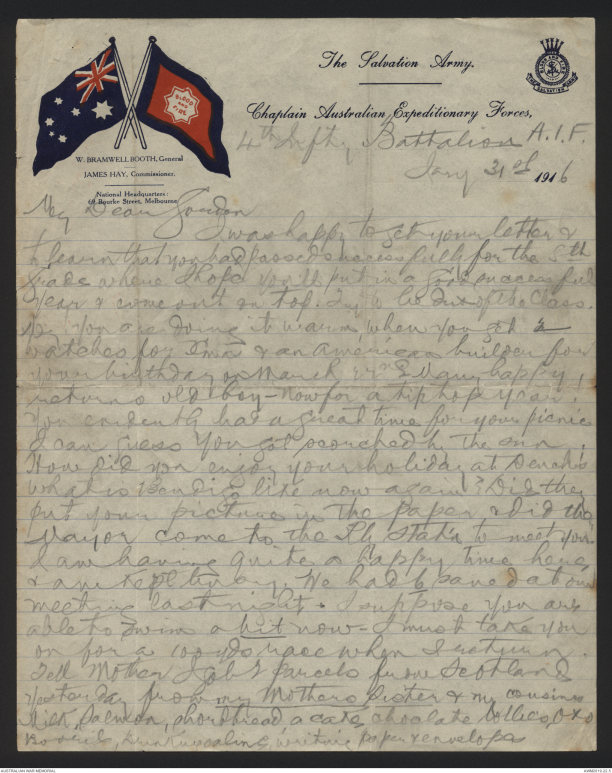 The Salvation Army.
Chaplain Australian Expeditionary Forces,
BLOOD AND FIRE
W. BRAMWELL BOOTH, General
JAMES HAY, Commissioner.
National Headquarters:
69 Bourke Street, Melbourne
4th Infty Battalion A.I.F.
Jany 31st 1916
My Dear Gordon
I was happy to get your letter &
to learn that you had passed successfully for the 5th
grade where I hope you'll put in a good successful
year & come out on top. of the Class.
My you are doing it warm, when you get 2
watches for Xmas & an American builder for
your birthday on March Many happy
returns old boy - now for a hip hop year!
You evidently had a great time for your picnic
I can guess you got scorched by the sun.
How did you enjoy your holiday at
what is Bendigo like now again? Did they
put your picture in the paper & did the
Mayor come to the Rly Stat'n to meet you
I am having quite a happy time here,
& am kept busy. We had 6 saved at our
meeting last night. I suppose you are
able to swim a bit now - I must take you
on for a 100 yds race when I return.
Tell Mother I got 2 parcels from Scotland
yesterday from my Mothers Sister & my cousins
Milk, Salmon, shortbread a cake, choclate lollies, Oxo
writing paper & envelopes
AUSTRALIAN WAR MEMORIAL